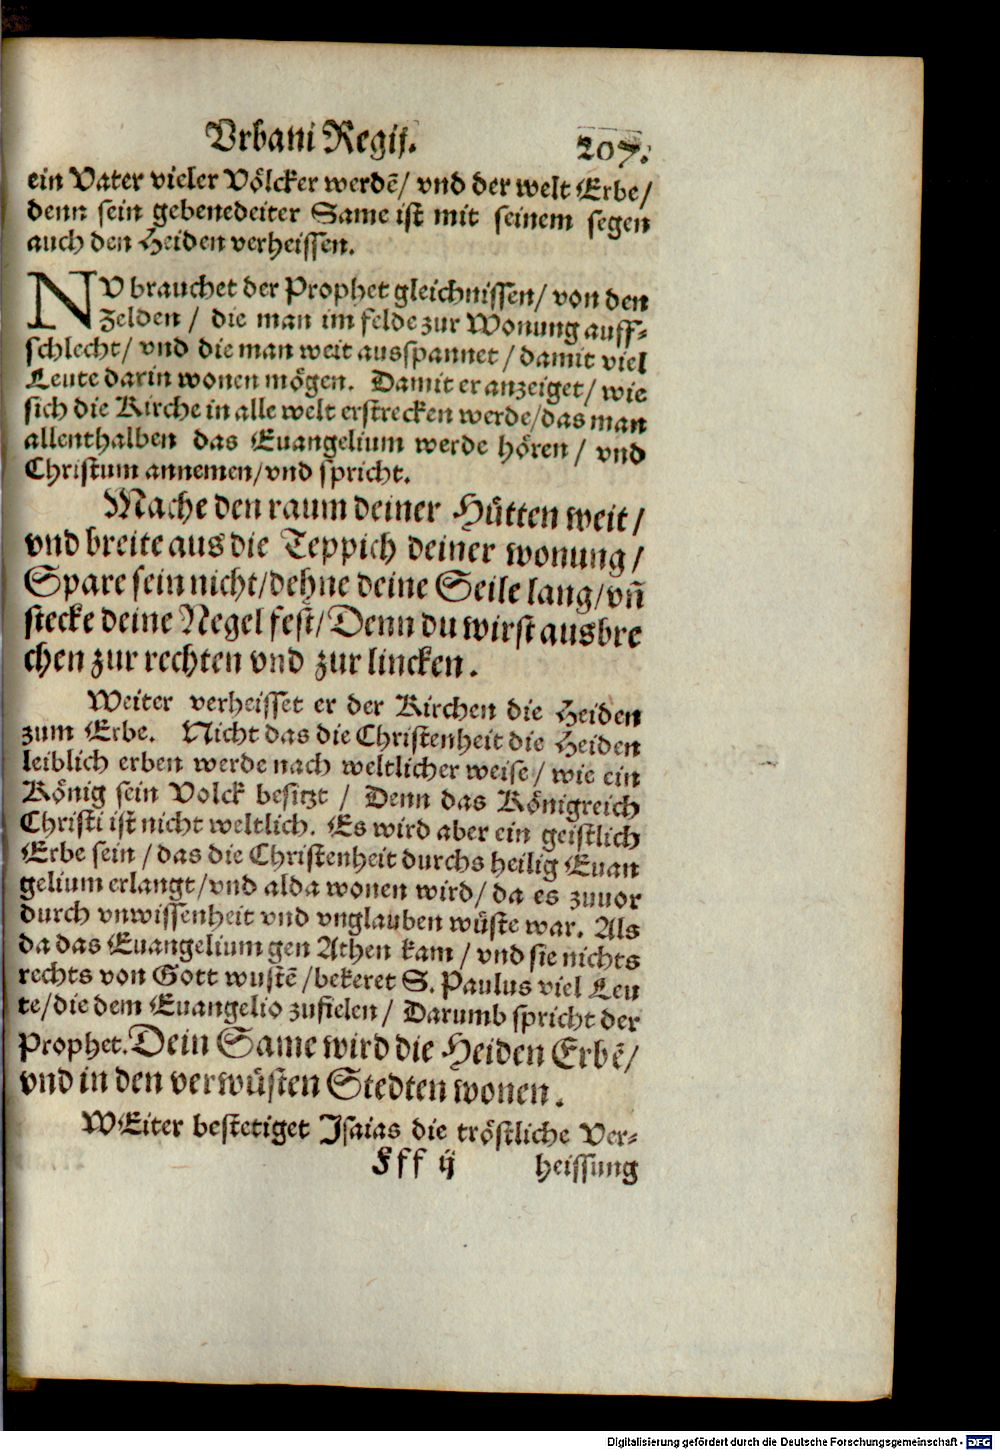 Vrbani Regij. 207.
ein Vater vieler Völcker werdē/ vnd der welt Erbe/
denn sein gebenedeiter Same ist mit seinem segen
auch den Heiden verheissen.
NV brauchet der Prophet gleichnissen/ von den
Zelden / die man im felde zur Wonung auff-
schlecht/ vnd die man weit ausspannet / damit viel
Leute darin wonen mögen. Damit er anzeiget/ wie
sich die Kirche in alle welt erstrecken werde/das man
allenthalben das Euangelium werde hören / vnd
Christum annemen/vnd spricht.
Mache den raum deiner Hütten weit/
vnd breite aus die Teppich deiner wonung/
Spare sein nicht/dehne deine Seile lang/vn̄
stecke deine Negel fest/Denn du wirst ausbre
chen zur rechten vnd zur lincken.
Weiter verheisset er der Kirchen die Heiden
zum Erbe. Nicht das die Christenheit die Heiden
leiblich erben werde nach weltlicher weise/ wie ein
König sein Volck besitzt / Denn das Königreich
Christi ist nicht weltlich. Es wird aber ein geistlich
Erbe sein / das die Christenheit durchs heilig Euan
gelium erlangt/vnd alda wonen wird/ da es zuuor
durch vnwissenheit vnd vnglauben wüste war. Als
da das Euangelium gen Athen kam / vnd sie nichts
rechts von Gott wustē /bekeret S. Paulus viel Leu
te/die dem Euangelio zufielen/ Darumb spricht der
Prophet. Dein Same wird die Heiden Erbē/
vnd in den verwüsten Stedten wonen.
WEiter bestetiget Isaias die tröstliche Ver-
Fff ij heissung
Digitalisierung gefördert durch die Deutsche Forschungsgemeinschaft - DFG